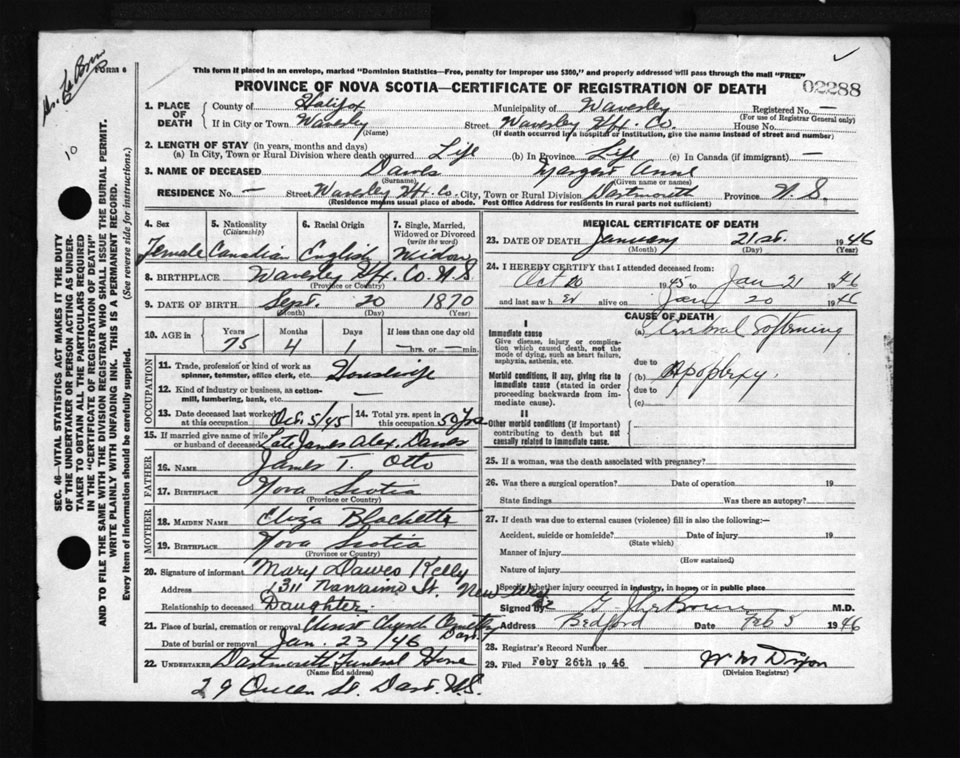 Form 6
This form if placed in an envelope, marked "Dominion Statistics—Free, penalty for improper use $300," and properly addressed will pass through the mail "FREE"
PROVINCE OF NOVA SCOTIA—CERTIFICATE OF REGISTRATION OF DEATH 02288
1. PLACE OF DEATH County of Halifax Municipality of Waverley Registered No. —
(For use of Registrar General only)
If in City or Town Waverley Street Waverley Hfx. Co. House No.
(Name) (If death occurred in a hospital or institution, give the name instead of street and number)
2. LENGTH OF STAY (in years, months and days)
(a) In City, Town or Rural Division where death occurred Life (b) In Province Life (c) In Canada (if immigrant) —
3. NAME OF DECEASED Dawes Margaret Anne
(Surname) (Given name or names)
RESIDENCE No. — Street Waverley Hfx Co. City, Town or Rural Division Dartmouth Province N.S.
(Residence means usual place of abode. Post Office Address for residents in rural parts not sufficient)
4. Sex 5. Nationality (Citizenship) 6. Racial Origin 7. Single, Married, Widowed or Divorced (write the word)
Female Canadian English Widow
8. BIRTHPLACE Waverley Hfx. Co. N.S.
(Province or Country)
9. DATE OF BIRTH Sept. 20 1870
(Month) (Day) (Year)
10. AGE in Years Months Days If less than one day old
75 4 1 —hrs. or —min.
OCCUPATION
11. Trade, profession or kind of work as spinner, teamster, office clerk, etc. Housewife
12. Kind of industry or business, as cotton-mill, lumbering, bank, etc. —
13. Date deceased last worked at this occupation Oct. 5/45 14. Total yrs. spent in this occupation 50 yrs
15. If married give name of wife or husband of deceased Late James Alex. Dawes
FATHER
16. NAME James T. Otto
17. BIRTHPLACE Nova Scotia
(Province or Country)
MOTHER
18. MAIDEN NAME Eliza Blackette
19. BIRTHPLACE Nova Scotia
(Province or Country)
20. Signature of informant Mary Dawes Kelly
Address 1311 Nanaimo St. New West
Relationship to deceased Daughter.
21. Place of burial, cremation or removal Christ Church Cemetery Dart.
Date of burial or removal Jan. 23/46
22. UNDERTAKER Dartmouth Funeral Home
(Name and address)
29 Queen St. Dart. N.S.
MEDICAL CERTIFICATE OF DEATH
23. DATE OF DEATH January 21st. 1946
(Month) (Day) (Year)
24. I HEREBY CERTIFY that I attended deceased from:
Oct 20 1945 to Jan 21 1946
and last saw her alive on Jan 20 1946
CAUSE OF DEATH
I
Immediate cause
Give disease, injury or complication which caused death, not the mode of dying, such as heart failure, asphyxia, asthenia, etc.
(a) Cerebral Softening
due to
Morbid conditions, if any, giving rise to immediate cause (stated in order proceeding backwards from immediate cause).
(b) Apoplexy.
due to
(c)
II
Other morbid conditions (if important) contributing to death but not causally related to immediate cause.
25. If a woman, was the death associated with pregnancy?
26. Was there a surgical operation? Date of operation 19
State findings Was there an autopsy?
27. If death was due to external causes (violence) fill in also the following:
Accident, suicide or homicide? Date of injury 19
(State which)
Manner of injury
(How sustained)
Nature of injury
Specify whether injury occurred in industry, in home or in public place
Signed by M.D.
Address Bedford Date Feb 5 1946
28. Registrar's Record Number
29. Filed Feby 26th 1946 W M Dixon
(Division Registrar)
SEC. 46—VITAL STATISTICS ACT MAKES IT THE DUTY
OF THE UNDERTAKER OR PERSON ACTING AS UNDER-
TAKER TO OBTAIN ALL THE PARTICULARS REQUIRED
IN THE "CERTIFICATE OF REGISTRATION OF DEATH"
AND TO FILE THE SAME WITH THE DIVISION REGISTRAR WHO SHALL ISSUE THE BURIAL PERMIT.
WRITE PLAINLY WITH UNFADING INK. THIS IS A PERMANENT RECORD.
Every item of information should be carefully supplied. (See reverse side for instructions.)
10